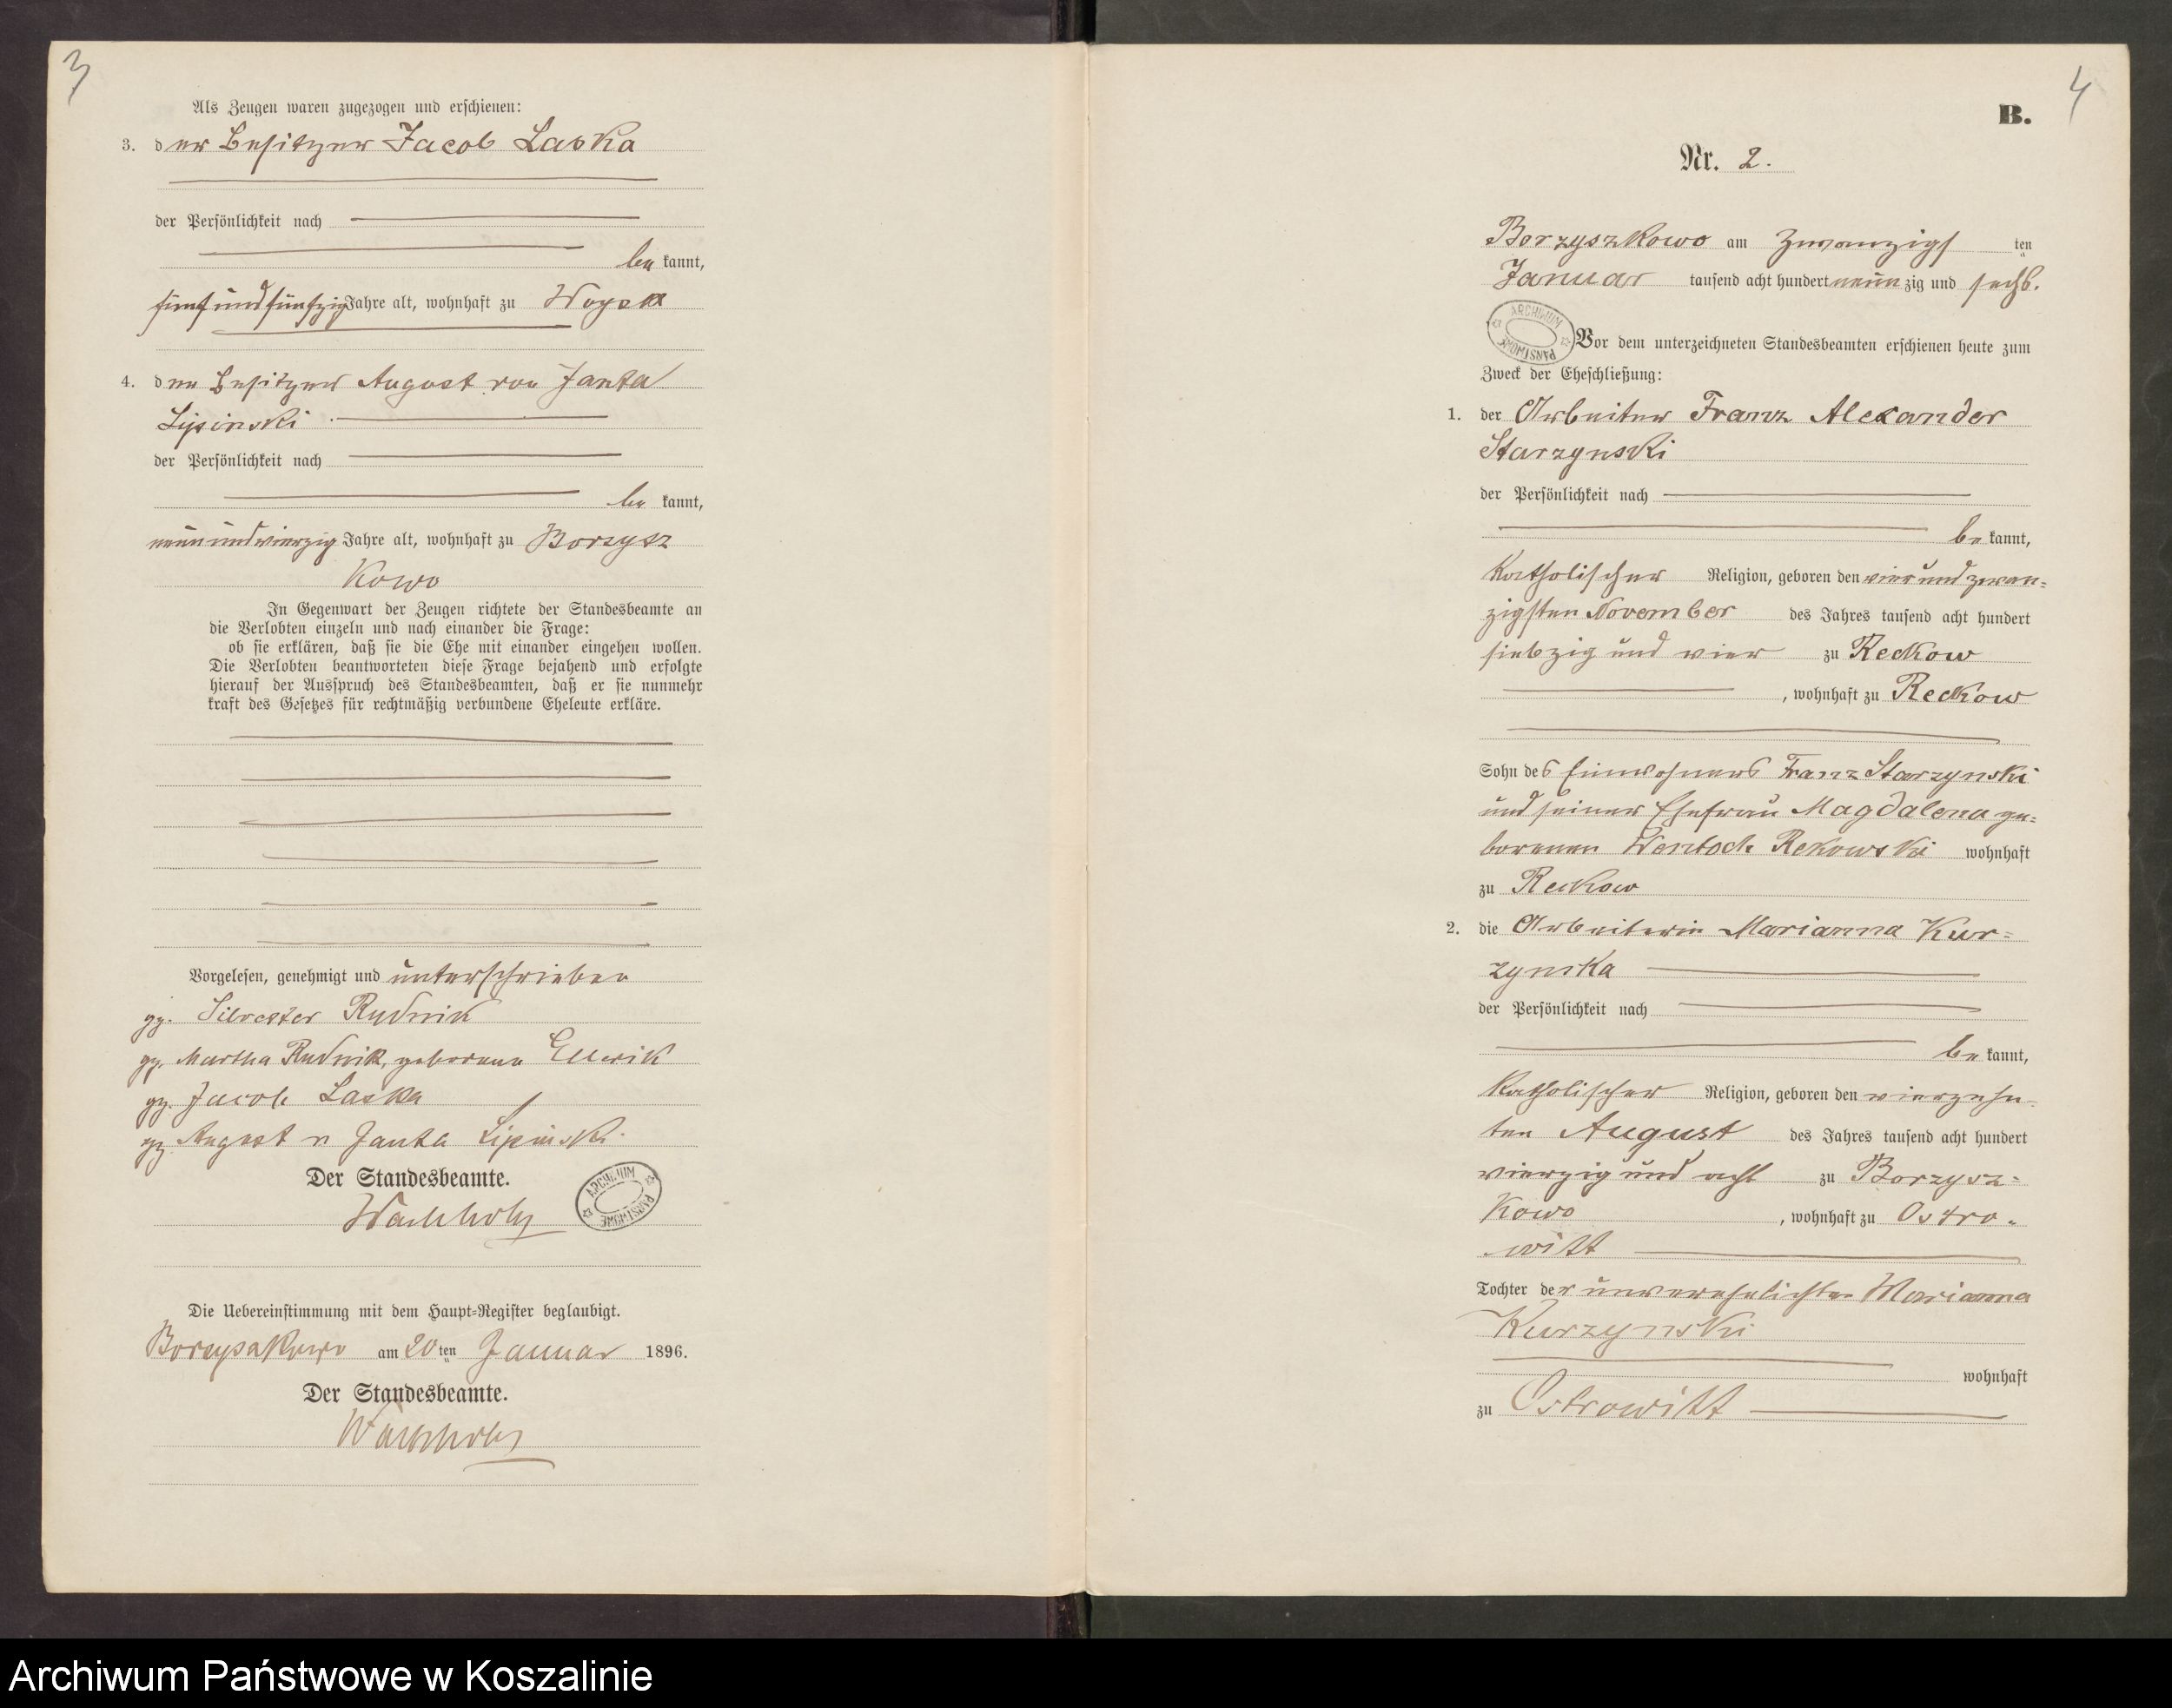 3
Als Zeugen waren zugezogen und erschienen:
3. der Besitzer Jacob Laska
der Persönlichkeit nach
be kannt,
fünfundfünfzig Jahre alt, wohnhaft zu Woysk
4. der Besitzer August von Janta
Lipinski
der Persönlichkeit nach
be kannt,
neunundvierzig Jahre alt, wohnhaft zu Borzysz
kowo
In Gegenwart der Zeugen richtete der Standesbeamte an
die Verlobten einzeln und nach einander die Frage:
ob sie erklären, daß sie die Ehe mit einander eingehen wollen.
Die Verlobten beantworteten diese Frage bejahend und erfolgte
hierauf der Ausspruch des Standesbeamten, daß er sie nunmehr
kraft des Gesetzes für rechtmäßig verbundene Eheleute erkläre.
Vorgelesen, genehmigt und unterschrieben
gz. Silvester Rudnik
gz. Martha Rudnik, geborene
gz. Jacob Laska
gz. August v Janta Lipinski
Der Standesbeamte.
Wachholz
ARCHIWUM PAŃSTWOWE
Die Uebereinstimmung mit dem Haupt=Register beglaubigt.
Borzyszkowo am 20 ten Januar 1896.
Der Standesbeamte.
Wachholz
4
B.
Nr. 2.
Borzyszkowo am zwanzigs ten
Januar tausend acht hundert neun zig und sechs.
ARCHIWUM PAŃSTWOWE
Vor dem unterzeichneten Standesbeamten erschienen heute zum
Zweck der Eheschließung:
1. der Arbeiter Franz Alexander
Starzynski
der Persönlichkeit nach
be kannt,
katholischer Religion, geboren den vierundzwan=
zigsten November des Jahres tausend acht hundert
siebzig und vier zu Reckow
, wohnhaft zu Reckow
Sohn des Einwohners Franz Starzynski
und seiner Ehefrau Magdalena ge=
borenen Wentoch Rekowski wohnhaft
zu Reckow
2. die Arbeiterin Marianna Kur=
zynska
der Persönlichkeit nach
be kannt,
katholischer Religion, geboren den vierzehn=
ten August des Jahres tausend acht hundert
vierzig und acht zu Borzysz=
kowo , wohnhaft zu Ostro=
witt
Tochter der unverehelichten Marianna
Kurzynski
wohnhaft
zu Ostrowitt
Archiwum Państwowe w Koszalinie